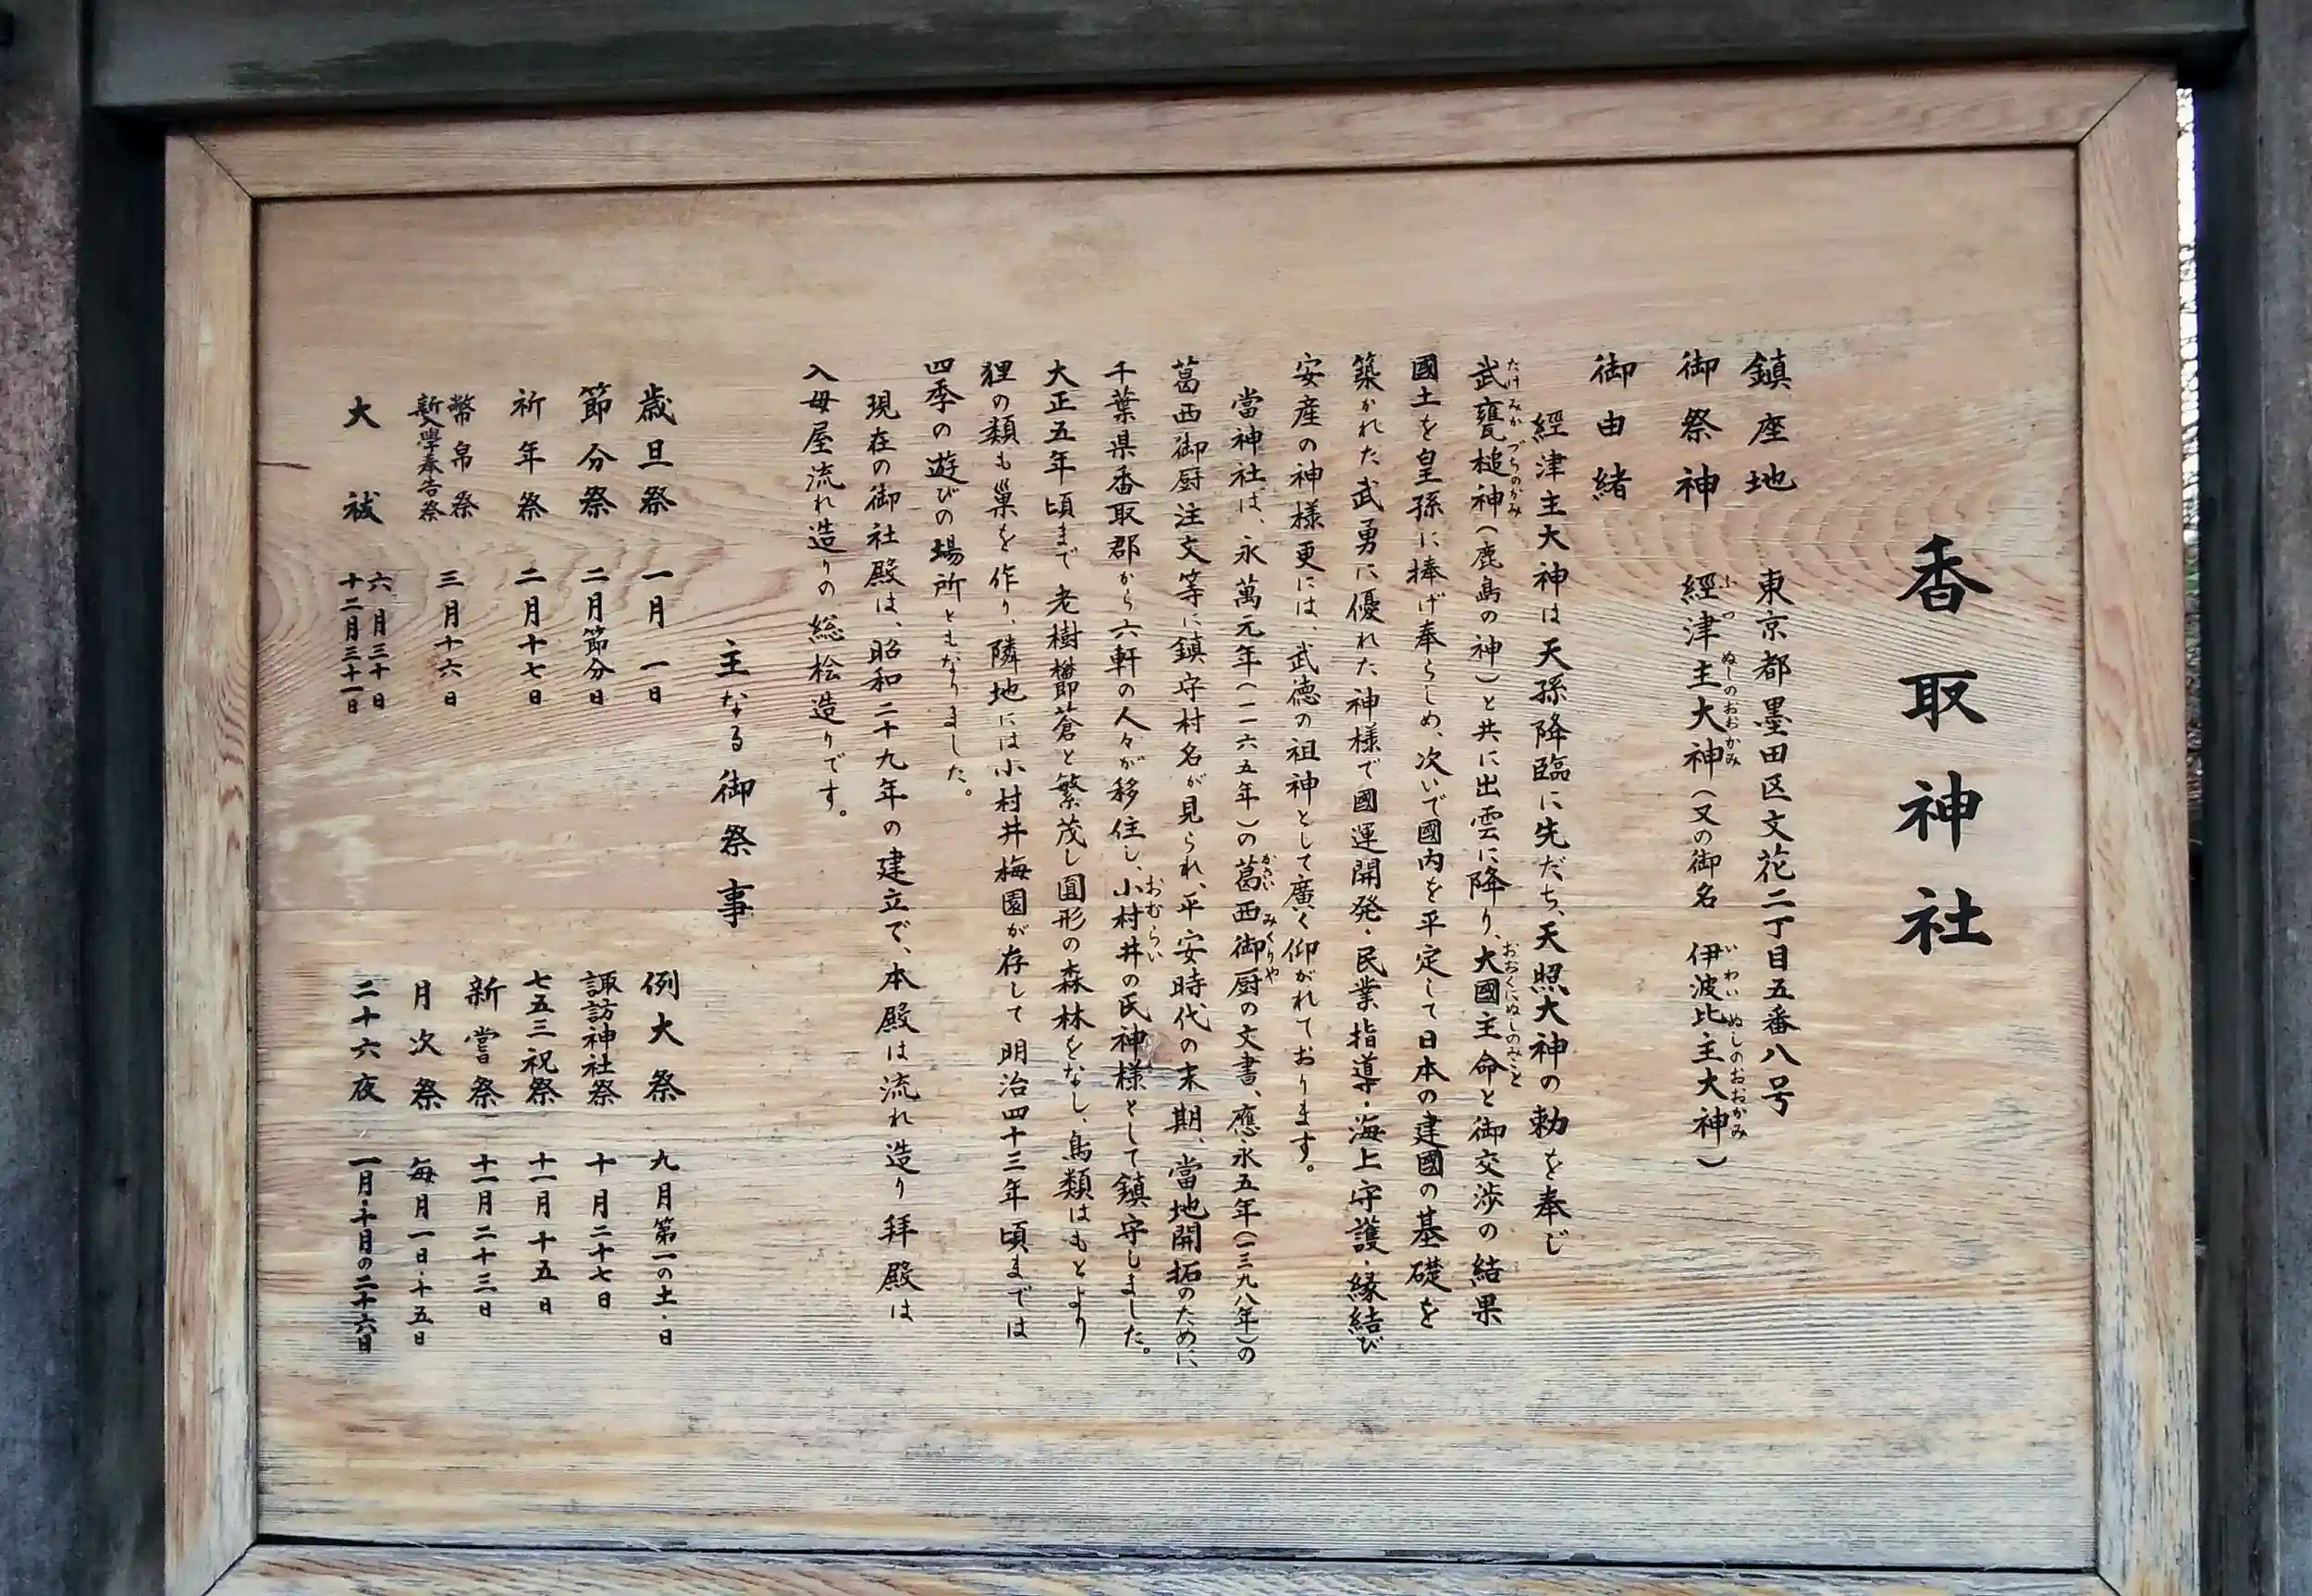 香取神社
鎮座地　東京都墨田区文花二丁目五番八号
御祭神　經津主大神（又の御名　伊波比主大神）
ふつぬしのおおかみ　いわいぬしのおおかみ
御由緒
經津主大神は天孫降臨に先だち、天照大神の勅を奉じ
武甕槌神（鹿島の神）と共に出雲に降り、大國主命と御交渉の結果
たけみかづちのかみ　おおくにぬしのみこと
國土を皇孫に捧げ奉らしめ、次いで國内を平定して日本の建國の基礎を
築かれた武勇に優れた神様で國運開発・民業指導・海上守護・縁結び
安産の神様更には、武徳の祖神として廣く仰がれております。
當神社は、永萬元年（一一六五年）の葛西御厨の文書、應永五年（一三九八年）の
かさい　みくりや
葛西御厨注文等に鎮守村名が見られ、平安時代の末期、當地開拓のために
千葉県香取郡から六軒の人々が移住し、小村井の氏神様として鎮守しました。
おむらい
大正五年頃まで老樹欝蒼と繁茂し圓形の森林をなし、鳥類はもとより
狸の類も巣を作り、隣地には小村井梅園が存して明治四十三年頃までは
四季の遊びの場所ともなりました。
現在の御社殿は、昭和二十九年の建立で、本殿は流れ造り拝殿は
入母屋流れ造りの総桧造りです。
主なる御祭事
歳旦祭　一月一日
節分祭　二月節分日
祈年祭　二月十七日
幣帛祭
新入學奉告祭　三月十六日
大祓　六月三十日
十二月三十一日
例大祭　九月第一の土・日
諏訪神社祭　十月二十七日
七五三祝祭　十一月十五日
新嘗祭　十一月二十三日
月次祭　毎月一日・十五日
二十六夜　一月・十月の二十六日